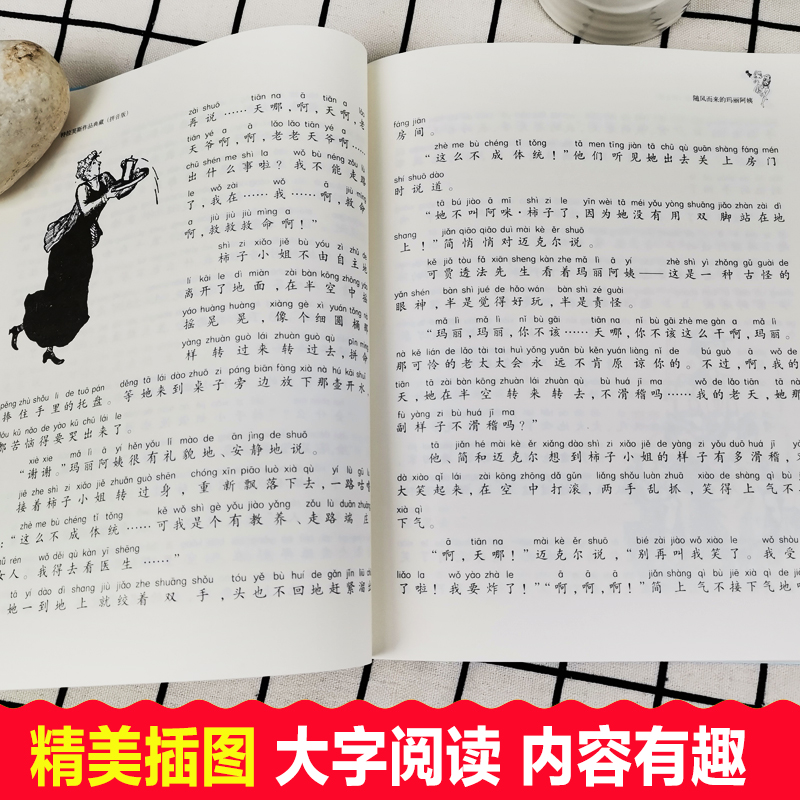 特拉芙斯作品典藏（拼音版）
zài shuō tiān na ā tiān a lǎo
再说……天哪，啊，天啊，老
tiān yé a ā lǎo lǎo tiān yé a
天爷啊，啊，老老天爷啊……
chū shén me shì la wǒ bù néng zǒu lù
出什么事啦？我不能走路
le wǒ zài wǒ ā jiù mìng
了，我在……我……啊，救命
a jiù jiù jiù mìng a
啊，救救救命啊！”
shì zi xiǎo jiě bù yóu zì zhǔ de
柿子小姐不由自主地
lí kāi le dì miàn zài bàn kōng zhōng yáo
离开了地面，在半空中摇
yáo huàng huàng xiàng gè xì yuán tǒng nà
摇晃晃，像个细圆桶那
yàng zhuàn guò lái zhuàn guò qù pīn mìng
样转过来转过去，拼命
pěng zhù shǒu li de tuō pán děng tā lái dào zhuō zi páng biān fàng xià nà hú kāi shuǐ
捧住手里的托盘。等她来到桌子旁边放下那壶开水，
dōu kǔ nǎo de yào kū chū lái le
都苦恼得要哭出来了。
xiè xie mǎ lì ā yí hěn yǒu lǐ mào de ān jìng de shuō
“谢谢。”玛丽阿姨很有礼貌地、安静地说。
jiē zhe shì zi xiǎo jiě zhuǎn guò shēn chóng xīn piāo luò xià qù yí lù gū
接着柿子小姐转过身，重新飘落下去，一路咕
zhè me bù chéng tǐ tǒng kě wǒ shì gè yǒu jiào yǎng zǒu lù duān zhuāng
：“这么不成体统……可我是个有教养、走路端庄
nǚ rén wǒ děi qù kàn yī shēng
女人。我得去看医生……”
tā yí dào dì shang jiù jiǎo zhe shuāng shǒu tóu yě bù huí de gǎn jǐn liū
她一到地上就绞着双手，头也不回地赶紧溜
随风而来的玛丽阿姨
fáng jiān
房间。
zhè me bù chéng tǐ tǒng tā men tīng jiàn tā chū qù guān shàng fáng mén
“这么不成体统！”他们听见她出去关上房门
shí shuō dào
时说道。
tā bú jiào ā mī shì zi le yīn wèi tā méi yǒu yòng shuāng jiǎo zhàn zài dì
“她不叫阿咪·柿子了，因为她没有用双脚站在地
shang jiǎn qiāo qiāo duì mài kè ěr shuō
上！”简悄悄对迈克尔说。
kě jiǎ tòu fǎ xiān sheng kàn zhe mǎ lì ā yí zhè shì yì zhǒng gǔ guài de
可贾透法先生看着玛丽阿姨——这是一种古怪的
yǎn shén bàn shì jué de hǎo wán bàn shì zé guài
眼神，半是觉得好玩，半是责怪。
mǎ lì mǎ lì nǐ bù gāi tiān na nǐ bù gāi zhè me gàn a mǎ lì
“玛丽，玛丽，你不该……天哪，你不该这么干啊，玛丽。
nà kě lián de lǎo tài tai huì yǒng yuǎn bù kěn yuán liàng nǐ de bú guò ā wǒ de
那可怜的老太太会永远不肯原谅你的。不过，啊，我的
tiān tā zài bàn kōng zhuàn lái zhuàn qù bù huá jī ma wǒ de lǎo tiān tā nà
天，她在半空转来转去，不滑稽吗……我的老天，她那
fù yàng zi bù huá jī ma
副样子不滑稽吗？”
tā jiǎn hé mài kè ěr xiǎng dào shì zi xiǎo jiě de yàng zi yǒu duō huá jī
他、简和迈克尔想到柿子小姐的样子有多滑稽，
dà xiào qǐ lái zài kōng zhōng dǎ gǔn liǎng shǒu luàn zhuā xiào de shàng qì bù
大笑起来，在空中打滚，两手乱抓，笑得上气不
xià qì
下气。
ā tiān na mài kè ěr shuō bié zài jiào wǒ xiào le wǒ shòu
“啊，天哪！”迈克尔说，“别再叫我笑了。我受
liǎo la wǒ yào zhà le ā ā ā jiǎn shàng qì bù jiē xià qì de
了啦！我要炸了！”“啊，啊，啊！”简上气不接下气地
精美插图 大字阅读 内容有趣